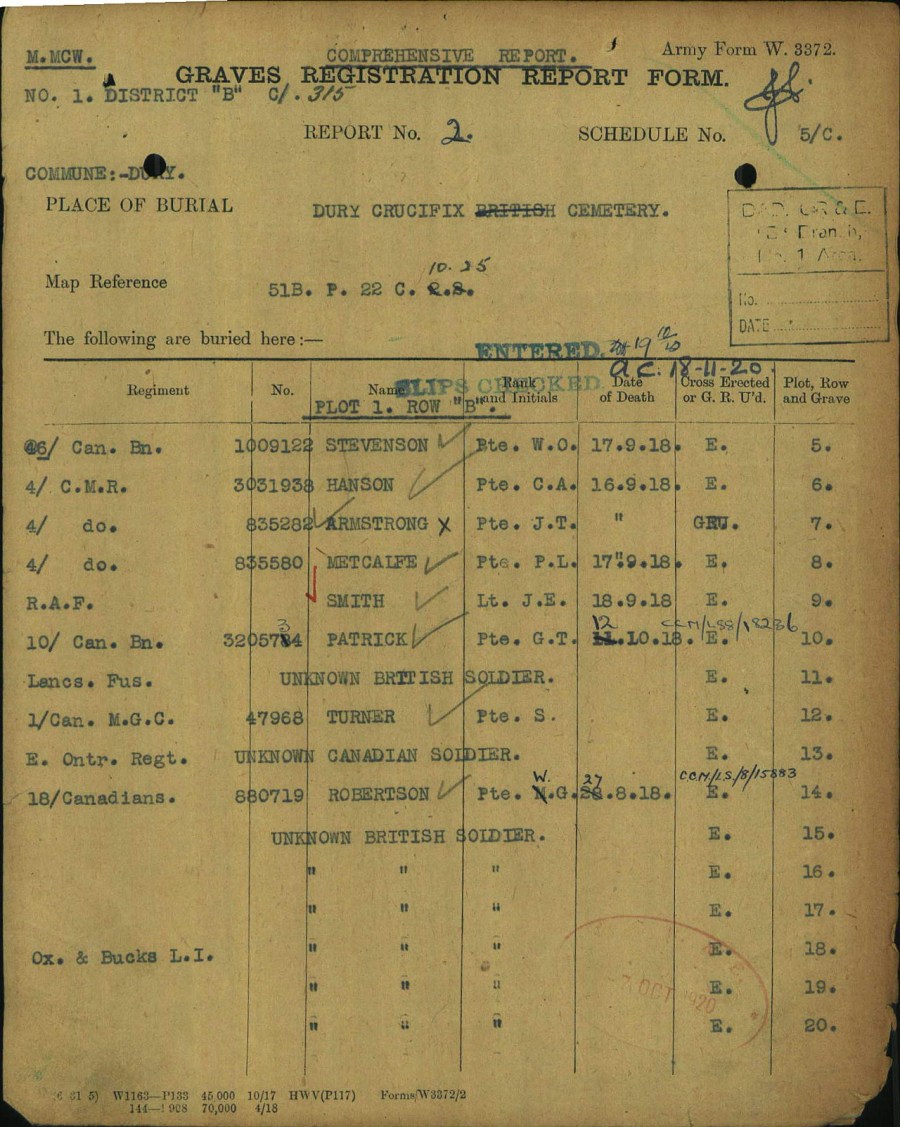 M.MCW. COMPREHENSIVE REPORT. Army Form W. 3372.
GRAVES REGISTRATION REPORT FORM.
NO. 1. DISTRICT "B" C/. 315
REPORT No. 2. SCHEDULE No. 5/C.
COMMUNE:-DURY.
PLACE OF BURIAL DURY CRUCIFIX BRITISH CEMETERY.
Branch,
No. 1 Area.
No.
DATE
10. 25
Map Reference 51B. P. 22 C.
The following are buried here:—
ENTERED. 19
a.c. 18-11-20.
SLIPS CHECKED.
Regiment No. Name Rank and Initials Date of Death Cross Erected or G. R. U'd. Plot, Row and Grave
PLOT 1. ROW "B".
46/ Can. Bn. 1009122 STEVENSON Pte. W.O. 17.9.18. E. 5.
4/ C.M.R. 3031938 HANSON Pte. C.A. 16.9.18. E. 6.
4/ do. 835282 ARMSTRONG X Pte. J.T. " GRU. 7.
4/ do. 835580 METCALFE Pte. P.L. 17.9.18. E. 8.
R.A.F. SMITH Lt. J.E. 18.9.18 E. 9.
3 12 CCM/LSS/18236
10/ Can. Bn. 3205784 PATRICK Pte. G.T. 11.10.18. E. 10.
Lancs. Fus. UNKNOWN BRITISH SOLDIER. E. 11.
1/Can. M.G.C. 47968 TURNER Pte. S. E. 12.
E. Ontr. Regt. UNKNOWN CANADIAN SOLDIER. E. 13.
W. 27 CCM/LS/8/15883
18/Canadians. 880719 ROBERTSON Pte. N.G. 28.8.18. E. 14.
UNKNOWN BRITISH SOLDIER. E. 15.
" " " E. 16.
" " " E. 17.
Ox. & Bucks L.I. " " " E. 18.
" " " E. 19.
OCT 1920
" " " E. 20.
5) W1163—P133 45,000 10/17 HWV(P117) Forms/W3372/2
70,000 4/18